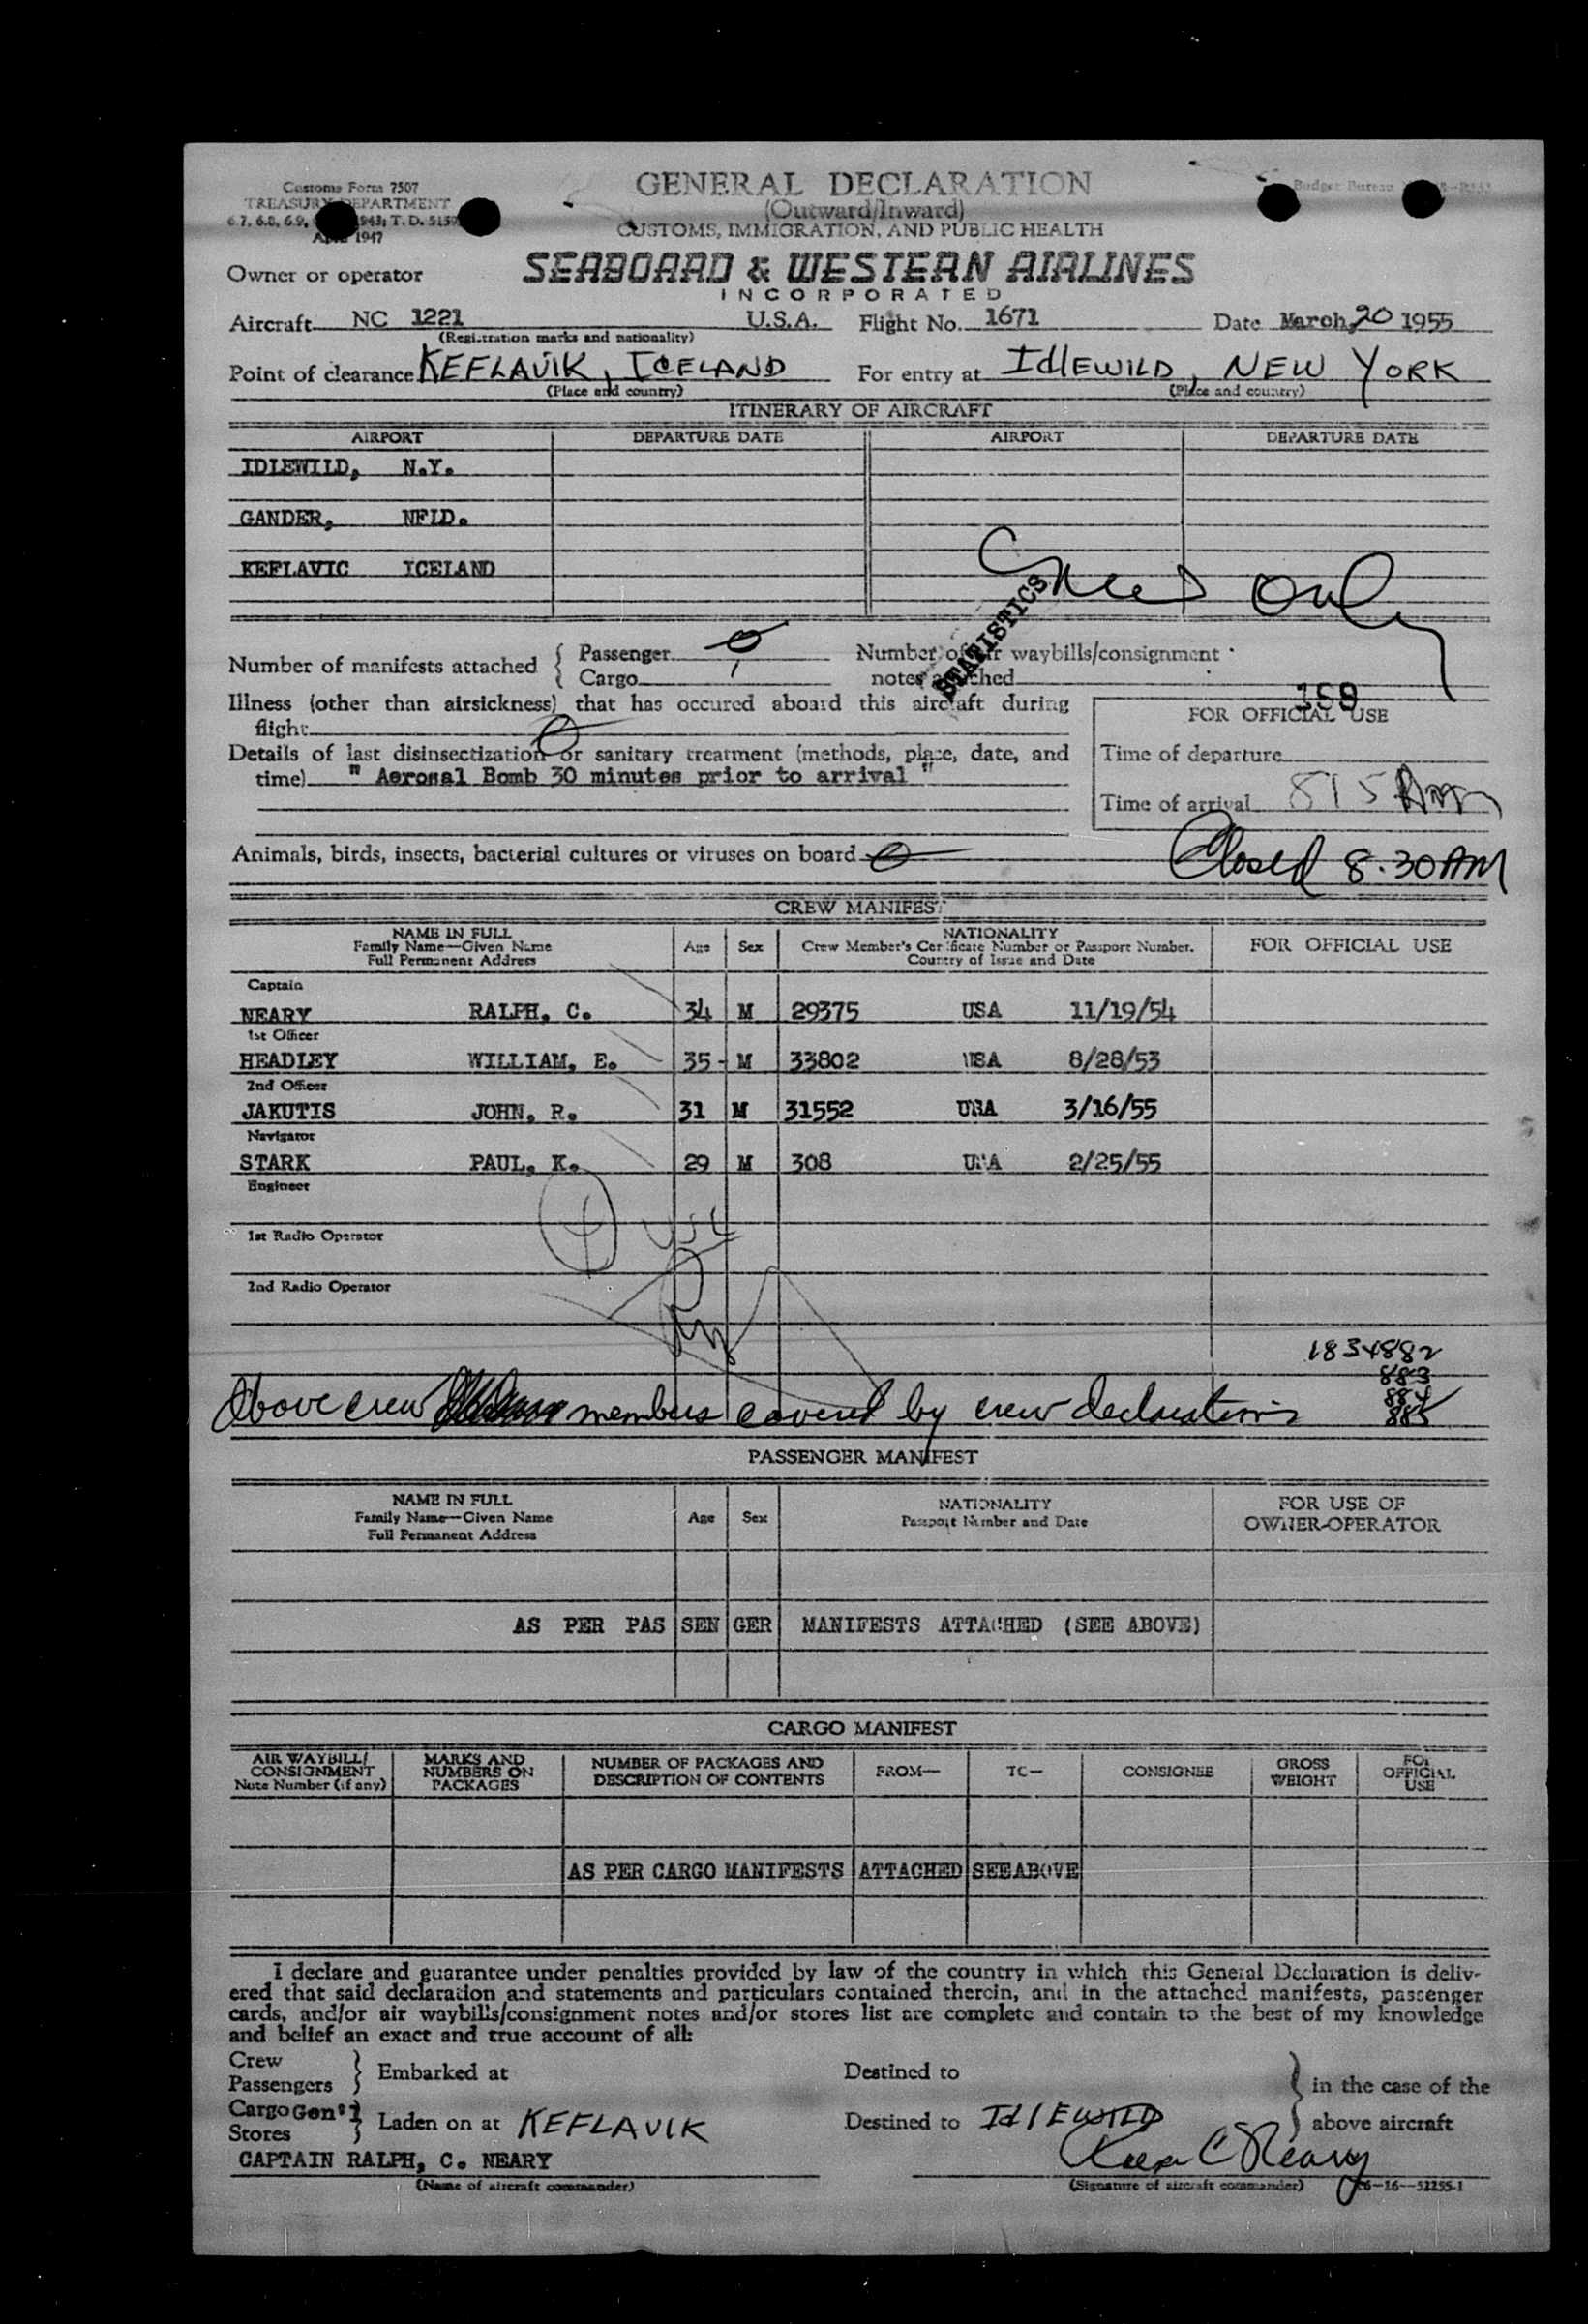 Customs Form 7507
TREASURY DEPARTMENT
6.7, 6.8, 6.9, 1943; T. D. 5159
1947
GENERAL DECLARATION
(Outward/Inward)
CUSTOMS, IMMIGRATION, AND PUBLIC HEALTH
Budget Bureau
Owner or operator
SEABOARD & WESTERN AIRLINES
INCORPORATED
Aircraft NC 1221 U.S.A. Flight No. 1671 Date March, 20 1955
(Registration marks and nationality)
Point of clearance KEFLAVIK, ICELAND For entry at IdlEWILD, NEW YORK
(Place and country) (Place and country)
ITINERARY OF AIRCRAFT
AIRPORT DEPARTURE DATE AIRPORT DEPARTURE DATE
IDLEWILD, N.Y.
GANDER, NFLD.
KEFLAVIC ICELAND
Crew Only
STATISTICS
Number of manifests attached { Passenger 0 Number of air waybills/consignment
Cargo 1 notes attached
Illness (other than airsickness) that has occured aboard this aircraft during
flight 0
159
FOR OFFICIAL USE
Details of last disinsectization or sanitary treatment (methods, place, date, and
time) " Aerosal Bomb 30 minutes prior to arrival "
Time of departure
Time of arrival 815 Am
Animals, birds, insects, bacterial cultures or viruses on board 0
Closed 8.30AM
CREW MANIFEST
NAME IN FULL
Family Name—Given Name
Full Permanent Address
Age Sex
NATIONALITY
Crew Member's Certificate Number or Passport Number.
Country of Issue and Date
FOR OFFICIAL USE
Captain
NEARY RALPH. C. 34 M 29375 USA 11/19/54
1st Officer
HEADLEY WILLIAM, E. 35 - M 33802 USA 8/28/53
2nd Officer
JAKUTIS JOHN, R. 31 M 31552 USA 3/16/55
Navigator
STARK PAUL, K. 29 M 308 USA 2/25/55
Engineer
4 USC
1st Radio Operator
2nd Radio Operator
1834882
883
884
885
Above crew members covered by crew declarations
PASSENGER MANIFEST
NAME IN FULL
Family Name—Given Name
Full Permanent Address
Age Sex
NATIONALITY
Passport Number and Date
FOR USE OF
OWNER-OPERATOR
AS PER PAS SEN GER MANIFESTS ATTACHED (SEE ABOVE)
CARGO MANIFEST
AIR WAYBILL/
CONSIGNMENT
Note Number (if any)
MARKS AND
NUMBERS ON
PACKAGES
NUMBER OF PACKAGES AND
DESCRIPTION OF CONTENTS
FROM—
TO—
CONSIGNEE
GROSS
WEIGHT
FOR
OFFICIAL
USE
AS PER CARGO MANIFESTS ATTACHED SEE ABOVE
I declare and guarantee under penalties provided by law of the country in which this General Declaration is deliv-
ered that said declaration and statements and particulars contained therein, and in the attached manifests, passenger
cards, and/or air waybills/consignment notes and/or stores list are complete and contain to the best of my knowledge
and belief an exact and true account of all:
Crew
Passengers } Embarked at Destined to } in the case of the
Cargo Gen'l
Stores } Laden on at KEFLAVIK Destined to IdlEWILD } above aircraft
CAPTAIN RALPH, C. NEARY Ralph C Neary
(Name of aircraft commander) (Signature of aircraft commander) 16—16—52255-1